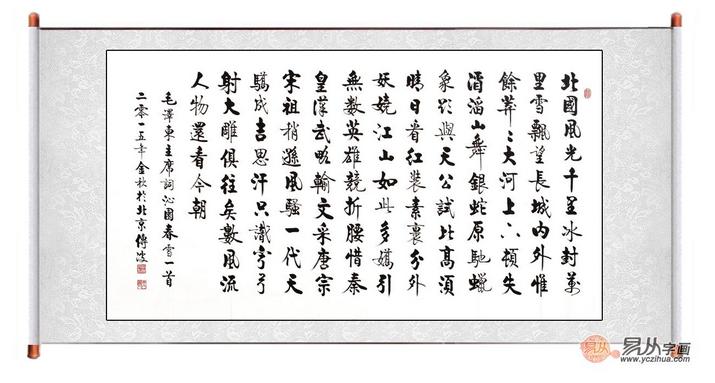 北國風光千里冰封萬
里雪飄望長城內外惟
餘莽〻大河上下頓失
滔滔山舞銀蛇原馳蠟
象欲與天公試比高須
晴日看紅裝素裹分外
妖嬈江山如此多嬌引
無數英雄競折腰惜秦
皇漢武略輸文采唐宗
宋祖稍遜風騷一代天
驕成吉思汗只識彎弓
射大雕俱往矣數風流
人物還看今朝
毛澤東主席詞沁園春雪一首
二零一五年金秋於北京傅波
易从
易从字画
www.yczihua.com